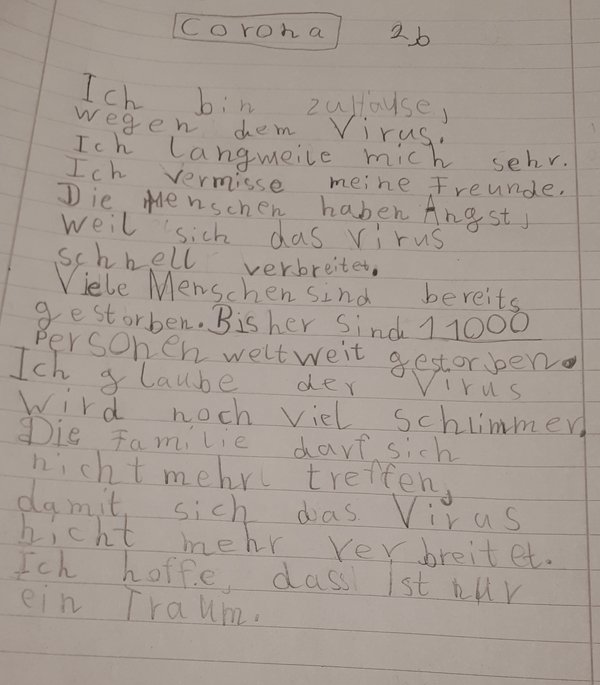 Corona 2b
Ich bin zuHause,
wegen dem Virus.
Ich langweile mich sehr.
Ich vermisse meine Freunde.
Die Menschen haben Angst,
weil sich das Virus
schnell verbreitet.
Viele Menschen sind bereits
gestorben. Bisher sind 11000
Personen weltweit gestorben.
Ich glaube der Virus
wird noch viel schlimmer.
Die Familie darf sich
nicht mehr treffen,
damit sich das Virus
nicht mehr verbreitet.
Ich hoffe, dass ist nur
ein Traum.